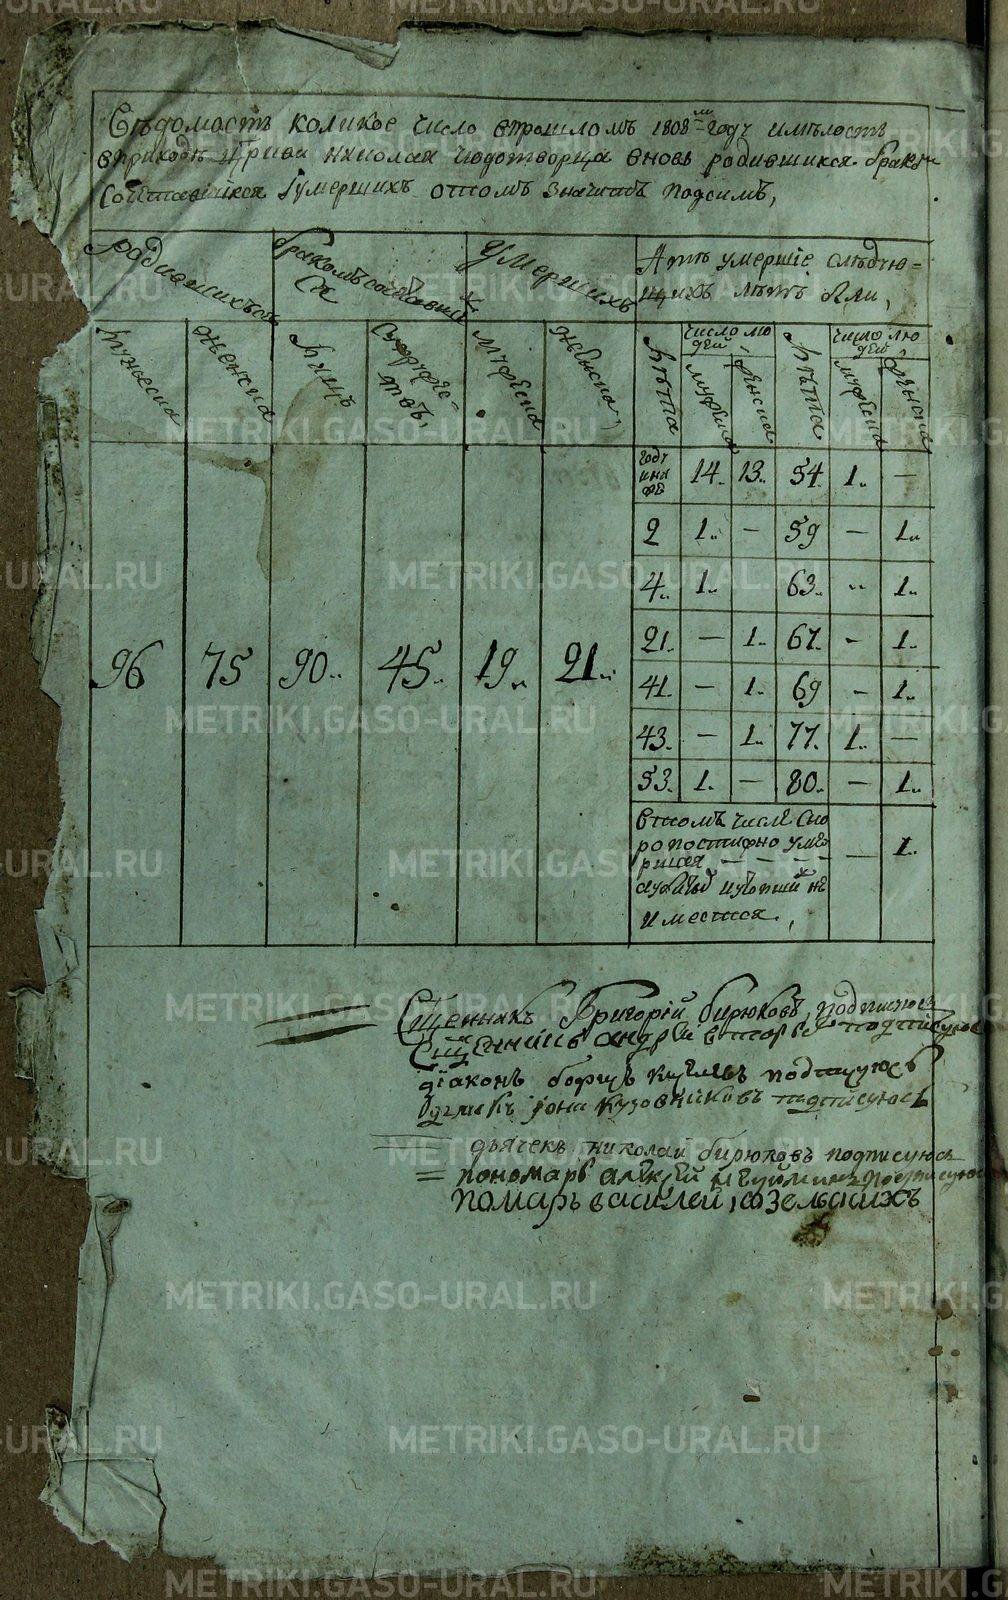 Вѣдомость коликое число впрошломъ 1808м году имѣлость
вприходѣ Николая чюдотворца вновь родившихся браком
Сочитавшихся Iумершихъ отомъ значитъ подсимъ,
родившихся
бракомъ сочитавших
ся
Умершихъ
Аптѣ умершiе слѣдую=
щихъ лѣтъ были,
мужеска
женска
Лицъ
Супруже=
твъ,
мужеска
женска,
Лѣта
число лю
дей,
мужеска
женска
Лѣта
число лю
дей,
мужеска
женска
96 75 90.. 45.. 19.. 21..
году
иниже 14.. 13.. 54. 1.. —
2 1.. — 59 — 1..
4.. 1.. 63.. .. 1..
21. — 1.. 67. — 1..
41. — 1.. 69 — 1..
43. — 1.. 77. 1.. —
53. 1.. — 80.. — 1..
втомъ числѣ ско
ропостижно уме
ршая — — — — — 1.
иутопших не
имѣется,
Сщенникъ Григорiй бирюковъ, подписуюсь
Сщенникъ андрей подписуюсь
дiаконъ подписуюсь
кузовниковъ подписуюсь
дьячекъ николай бирюковъ подписуюсь
= пономарь алексѣй подписуюсь
Помарь василей козельскихъ
METRIKI.GASO-URAL.RU